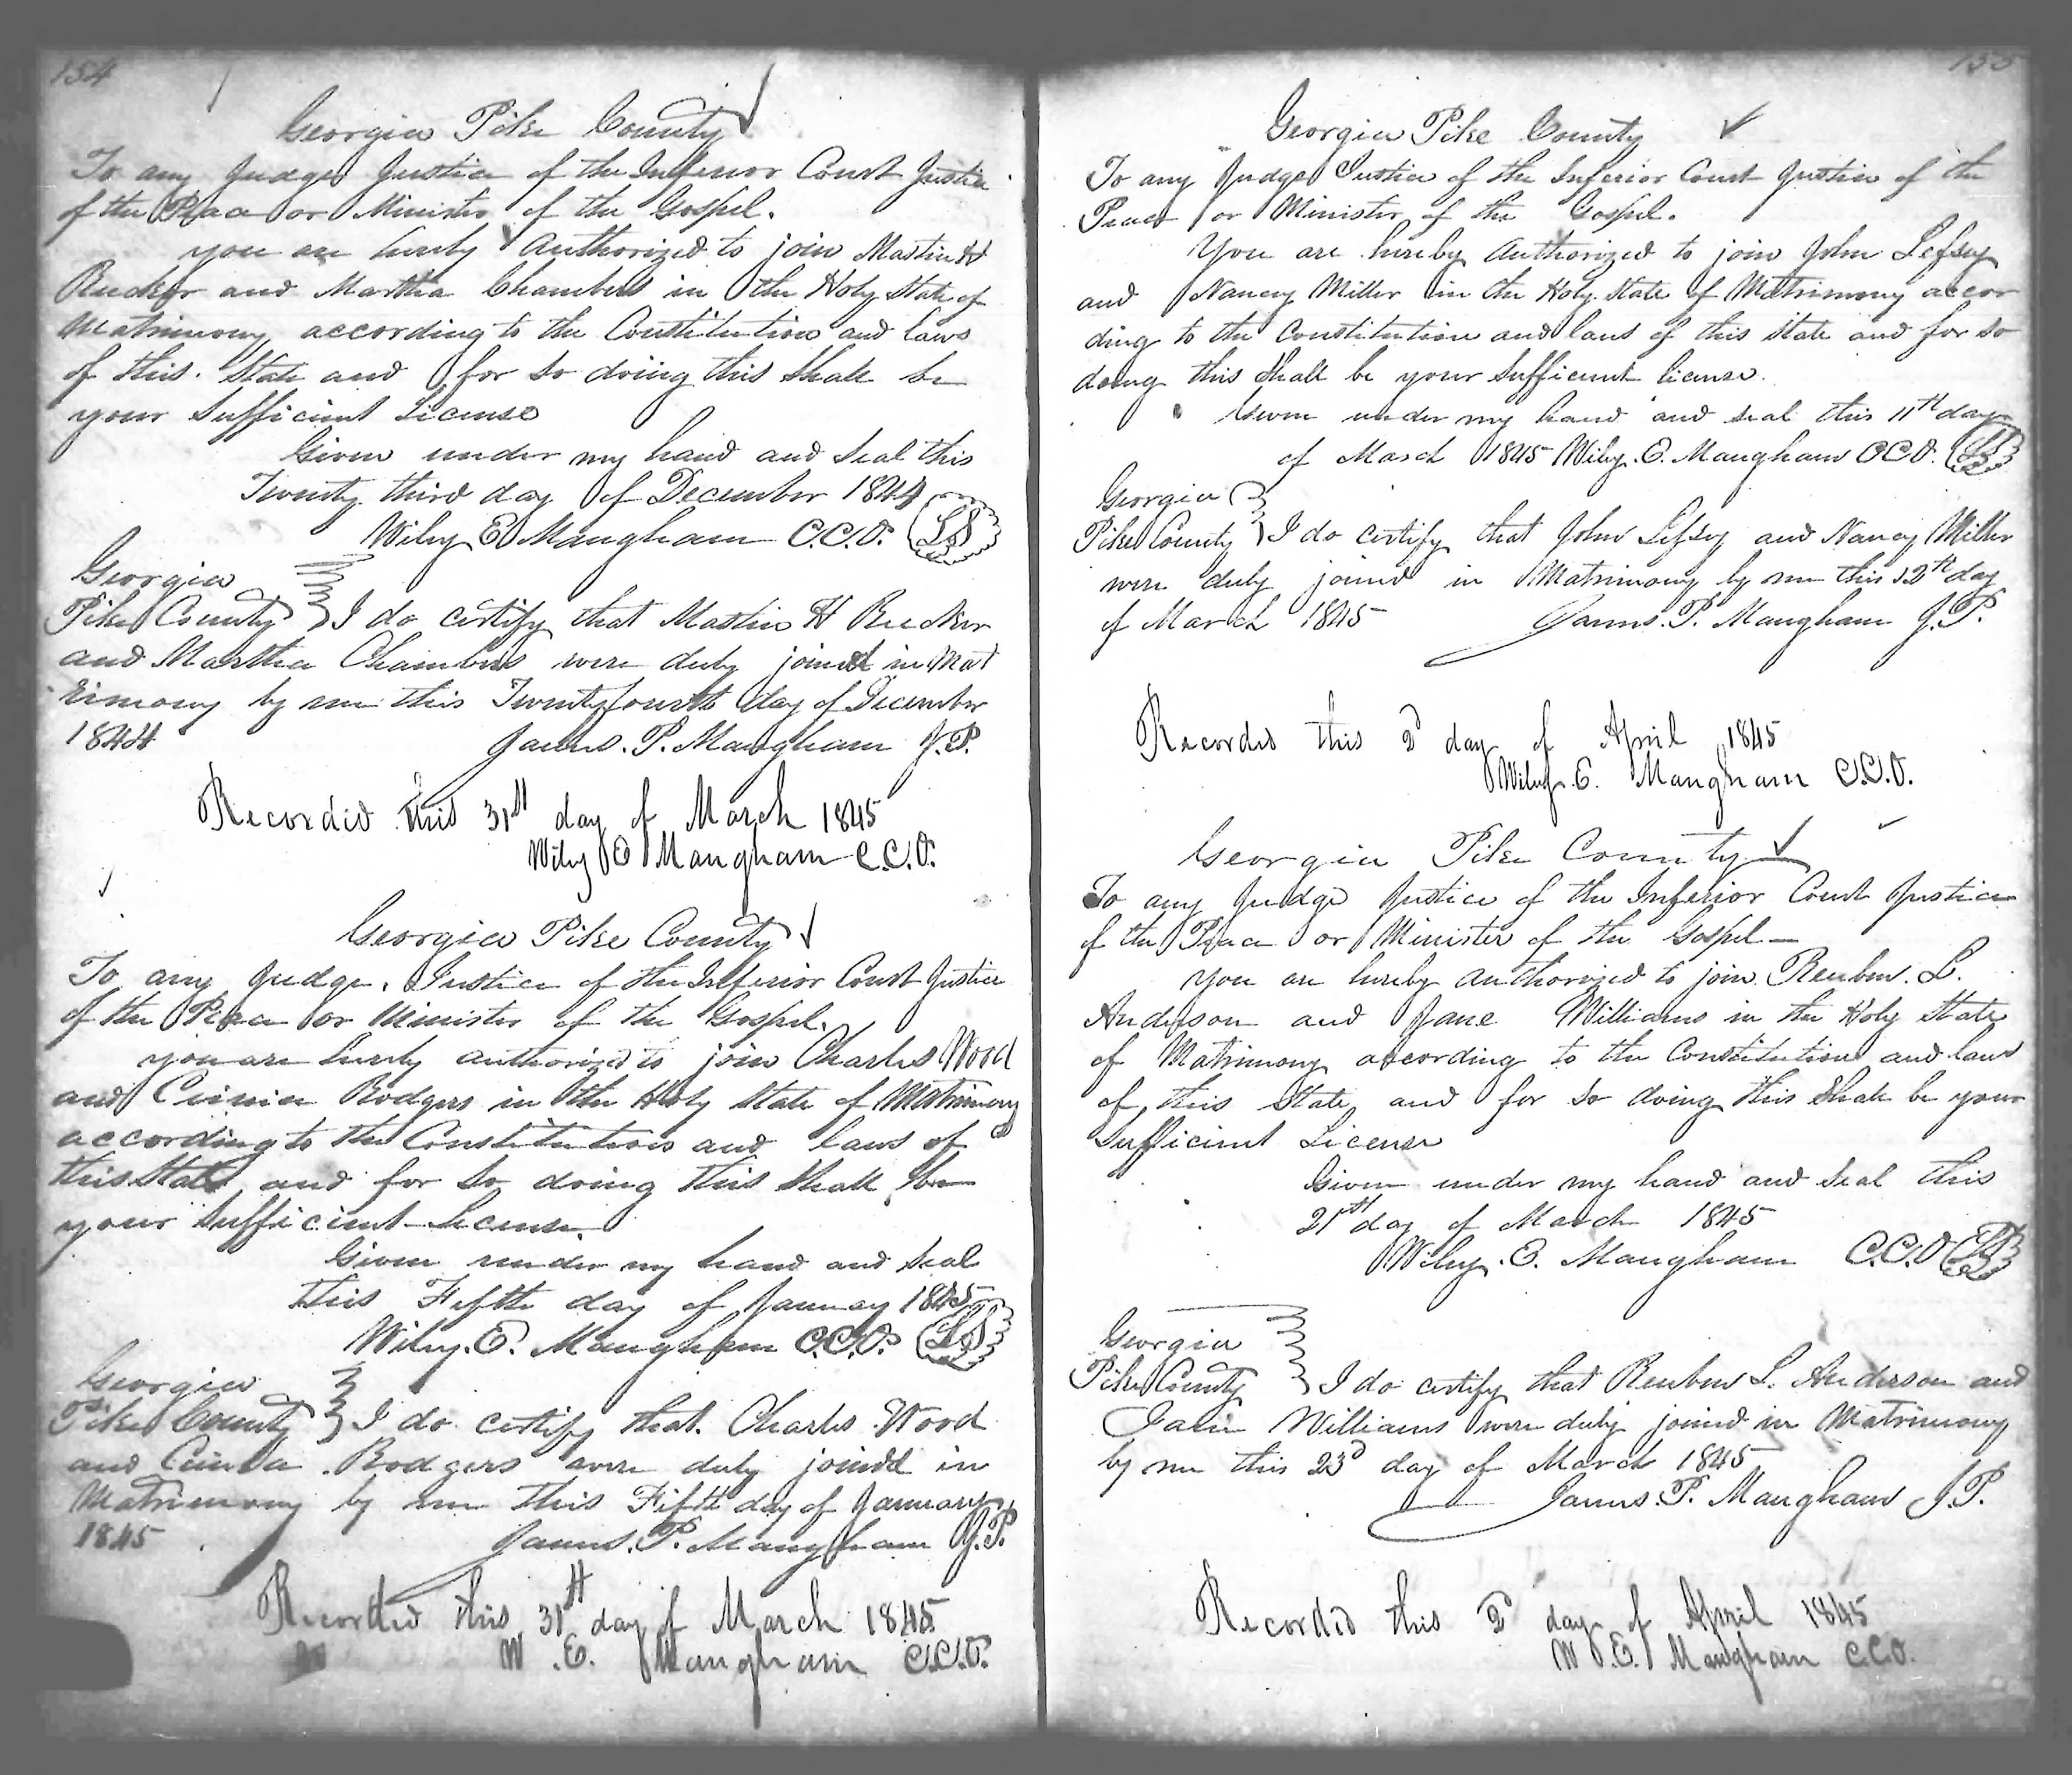 154
Georgia Pike County
To any Judge Justice of the Inferior Court Justice
of the Peace or Minister of the Gospel.
you are hereby Authorized to join Mastin H
Rucker and Martha Chambers in the Holy State of
Matrimony according to the Constitution and laws
of this State and for so doing this shall be
your sufficient License
Given under my hand and seal this
Twenty third day of December 1844
Wiley E Mangham C.C.O. LS
Georgia
Pike County I do certify that Mastin H Rucker
and Martha Chambers were duly joined in Mat
rimony by me this Twenty fourth day of December
1844 James. P. Mangham J.P.
Recorded this 31st day of March 1845
Wiley E Mangham C.C.O.
Georgia Pike County
To any Judge, Justice of the Inferior Court Justice
of the Peace or Minister of the Gospel.
you are hereby authorized to join Charles Wood
and Rodgers in the Holy State of Matrimony
according to the Constitution and laws of
this State and for so doing this shall be
your sufficient license.
Given under my hand and seal
this Fifth day of January 1845
Wiley. E. Mangham C.C.O. LS
Georgia
Pike County I do certify that. Charles Wood
and Rodgers were duly joined in
Matrimony by me this Fifth day of January
1845 James. P. Mangham J.P.
Recorded this 31st day of March 1845
W. E. Mangham C.C.O.
155
Georgia Pike County
To any Judge Justice of the Inferior Court Justice of the
Peace or Minister of the Gospel.
You are hereby authorized to join John Lefsey
and Nancy Miller in the Holy State of Matrimony accor
ding to the Constitution and laws of this State and for so
doing this shall be your sufficient license.
Given under my hand and seal this 11th day
of March 1845 Wiley. E. Mangham C.C.O. LS
Georgia
Pike County I do certify that John Lefsey and Nancy Miller
were duly joined in Matrimony by me this 12th day
of March 1845 James. P. Mangham J.P.
Recorded this 2d day of April 1845
Wiley. E. Mangham C.C.O.
Georgia Pike County
To any Judge Justice of the Inferior Court Justice
of the Peace or Minister of the Gospel
You are hereby authorized to join Reuben. L.
Anderson and Jane Williams in the Holy State
of Matrimony according to the Constitution and laws
of this State and for so doing this shall be your
sufficient License
Given under my hand and seal this
21st day of March 1845
Wiley. E. Mangham C.C.O LS
Georgia
Pike County I do certify that Reuben L. Anderson and
Jane Williams were duly joined in Matrimony
by me this 23d day of March 1845
James. P. Mangham J.P.
Recorded this 2d day of April 1845
W. E. Mangham C.C.O.